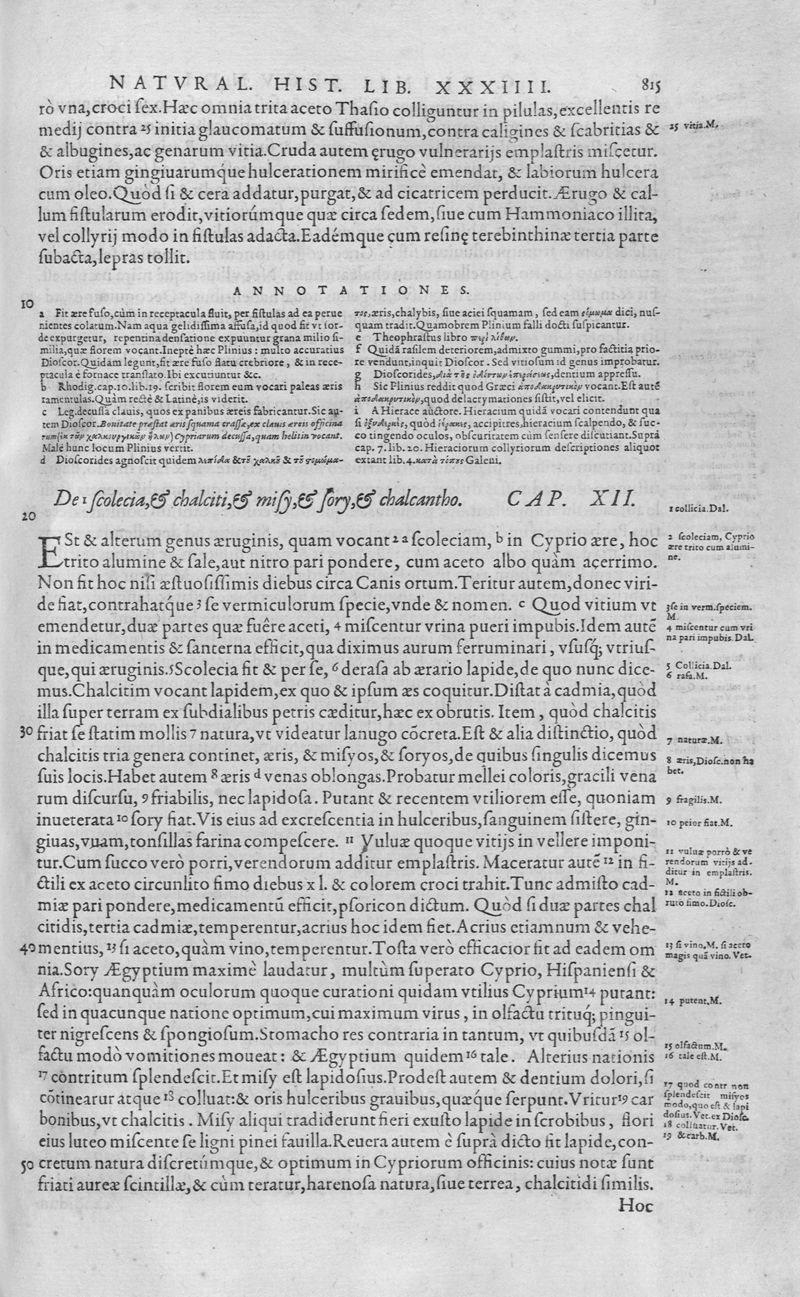 NATVRAL. HIST. LIB. XXXIIII. 815
rò vna,croci ſex.Hæc omnia trita aceto Thaſio colliguntur in pilulas,excellentis re
medij contra 25 initia glaucomatum & ſuffuſionum,contra caligines & ſcabritias &
& albugines,ac genarum vitia.Cruda autem ęrugo vulnerarijs emplaſtris miſcetur.
Oris etiam gingiuarumque hulcerationem mirificè emendat, & labiorum hulcera
cum oleo.Quòd ſi & cera addatur,purgat,& ad cicatricem perducit.Ærugo & cal-
lum fiſtularum erodit,vitiorúmque quæ circa ſedem,ſiue cum Hammoniaco illita,
vel collyrij modo in fiſtulas adacta.Eadémque cum reſinę terebinthinæ tertia parte
ſubacta,lepras tollit.
25 vitia.M.
ANNOTATIONES.
10
a Fit ære fuſo,cùm in receptacula fluit, per fiſtulas ad ea perue
nientes colatum.Nam aqua gelidiſſima affuſa,id quod fit vt ſor-
de expurgetur, repentina denſatione expuuntur grana milio ſi-
milia,quæ florem vocant.Ineptè hæc Plinius : multo accuratius
Dioſcor.Quidam legunt,fit ære fuſo flatu crebriore, & in rece-
ptacula è fornace tranſlato.Ibi excutiuntur &c.
b Rhodig.cap.10.lib.19. ſcribit florem eum vocari paleas æris
ramentulas.Quàm rectè & Latinè,is viderit.
c Leg.decuſſa clauis, quos ex panibus æreis fabricantur.Sic au-
tem Dioſcor.Bonitate præſtat æris ſquama craſſa,ex clauis æreis officina
Cypriarum decuſſa,quam helitin vocant.
Malè hunc locum Plinius vertit.
d Dioſcorides agnoſcit quidem
æris,chalybis, ſiue aciei ſquamam, ſed eam dici, nuſ-
quam tradit.Quamobrem Plinium falli docti ſuſpicantur.
e Theophraſtus libro περὶ λίθων.
f Quidã raſilem deteriorem,admixto gummi,pro factitia prio-
re vendunt,inquit Dioſcor. Sed vitioſum id genus improbatur.
g Dioſcorides, dentium appreſſu.
h Sic Plinius reddit quod Græci vocant.Eſt autẽ
quod delacrymationes ſiſtit,vel elicit.
i A Hierace auctore.Hieracium quidã vocari contendunt qua
ſi quòd accipitres,hieracium ſcalpendo, & ſuc-
co tingendo oculos, obſcuritatem cùm ſenſere diſcutiant.Suprà
cap. 7.lib.20. Hieraciorum collyriorum deſcriptiones aliquot
extant lib.4. κατὰ τόπους Galeni.
De 1 ſcolecia,& chalciti,& miſy,& ſory,& chalcantho. CAP. XII.
1 collicia.Dal.
20
ESt & alterum genus æruginis, quam vocant 2 a ſcoleciam, b in Cyprio ære, hoc
trito alumine & ſale,aut nitro pari pondere, cum aceto albo quàm acerrimo.
Non fit hoc niſi æſtuoſiſſimis diebus circa Canis ortum.Teritur autem,donec viri-
de fiat,contrahatq́ue 3 ſe vermiculorum ſpecie,vnde & nomen. c Quod vitium vt
emendetur,duæ partes quæ fuêre aceti, 4 miſcentur vrina pueri impubis.Idem autẽ
in medicamentis & ſanterna efficit,qua diximus aurum ferruminari, vſuſq; vtriuſ-
que,qui æruginis.5Scolecia fit & per ſe, 6 deraſa ab ærario lapide,de quo nunc dice-
mus.Chalcitim vocant lapidem,ex quo & ipſum æs coquitur.Diſtat à cadmia,quòd
illa ſuper terram ex ſubdialibus petris cæditur,hæc ex obrutis. Item, quòd chalcitis
30 friat ſe ſtatim mollis 7 natura,vt videatur lanugo cõcreta.Eſt & alia diſtinctio, quòd
chalcitis tria genera continet, æris, & miſyos,& ſoryos,de quibus ſingulis dicemus
ſuis locis.Habet autem 8 æris d venas oblongas.Probatur mellei coloris,gracili vena
rum diſcurſu, 9 friabilis, nec lapidoſa. Putant & recentem vtiliorem eſſe, quoniam
inueterata 10 ſory fiat.Vis eius ad excreſcentia in hulceribus,ſanguinem ſiſtere, gin-
giuas,vuam,tonſillas farina compeſcere. 11 Vuluæ quoque vitijs in vellere imponi-
tur.Cum ſucco verò porri,verendorum additur emplaſtris. Maceratur autẽ 12 in fi-
ctili ex aceto circunlito fimo diebus xl. & colorem croci trahit.Tunc admiſto cad-
miæ pari pondere,medicamentũ efficit,pſoricon dictum. Quòd ſi duæ partes chal
citidis,tertia cadmiæ,temperentur,acrius hoc idem fiet.Acrius etiamnum & vehe-
40 mentius, 13 ſi aceto,quàm vino,temperentur.Toſta verò efficacior fit ad eadem om
nia.Sory Ægyptium maximè laudatur, multùm ſuperato Cyprio, Hiſpanienſi &
Africo:quanquàm oculorum quoque curationi quidam vtilius Cyprium 14 putant:
ſed in quacunque natione optimum,cui maximum virus, in olfactu trituq; pingui-
ter nigreſcens & ſpongioſum.Stomacho res contraria in tantum, vt quibuſdã 15 ol-
factu modò vomitiones moueat : & Ægyptium quidem 16 tale. Alterius nationis
17 contritum ſplendeſcit.Et miſy eſt lapidoſius.Prodeſt autem & dentium dolori,ſi
cõtineatur atque 18 colluat:& oris hulceribus grauibus,quæque ſerpunt.Vritur 19 car
bonibus,vt chalcitis. Miſy aliqui tradiderunt fieri exuſto lapide in ſcrobibus, flori
eius luteo miſcente ſe ligni pinei fauilla.Reuera autem è ſuprà dicto fit lapide,con-
50 cretum natura diſcretúmque,& optimum in Cypriorum officinis: cuius notæ ſunt
friati aureæ ſcintillæ,& cùm teratur,harenoſa natura,ſiue terrea, chalcitidi ſimilis.
Hoc
2 ſcoleciam, Cyprio
ære trito cum alumi-
ne.
3 ſe in verm.ſpeciem.
M.
4 miſcentur cum vri
na pari impubis.Dal.
5 Collicia.Dal.
6 raſa.M.
7 naturæ.M.
8 æris,Dioſc.non ha
bet.
9 fragilis.M.
10 peior fiat.M.
11 vuluæ porrò & ve
rendorum vitijs ad-
ditur in emplaſtris.
M.
12 aceto in fictili ob-
ruto fimo.Dioſc.
13 ſi vino.M. ſi aceto
magis quã vino. Vet.
14 putent.M.
15 olfactum.M.
16 tale eſt.M.
17 quod contr non
ſplendeſcit miſyos
modo,quo eſt & lapi
doſius.Vet.ex Dioſc.
18 colluatur.Vet.
19 & carb.M.